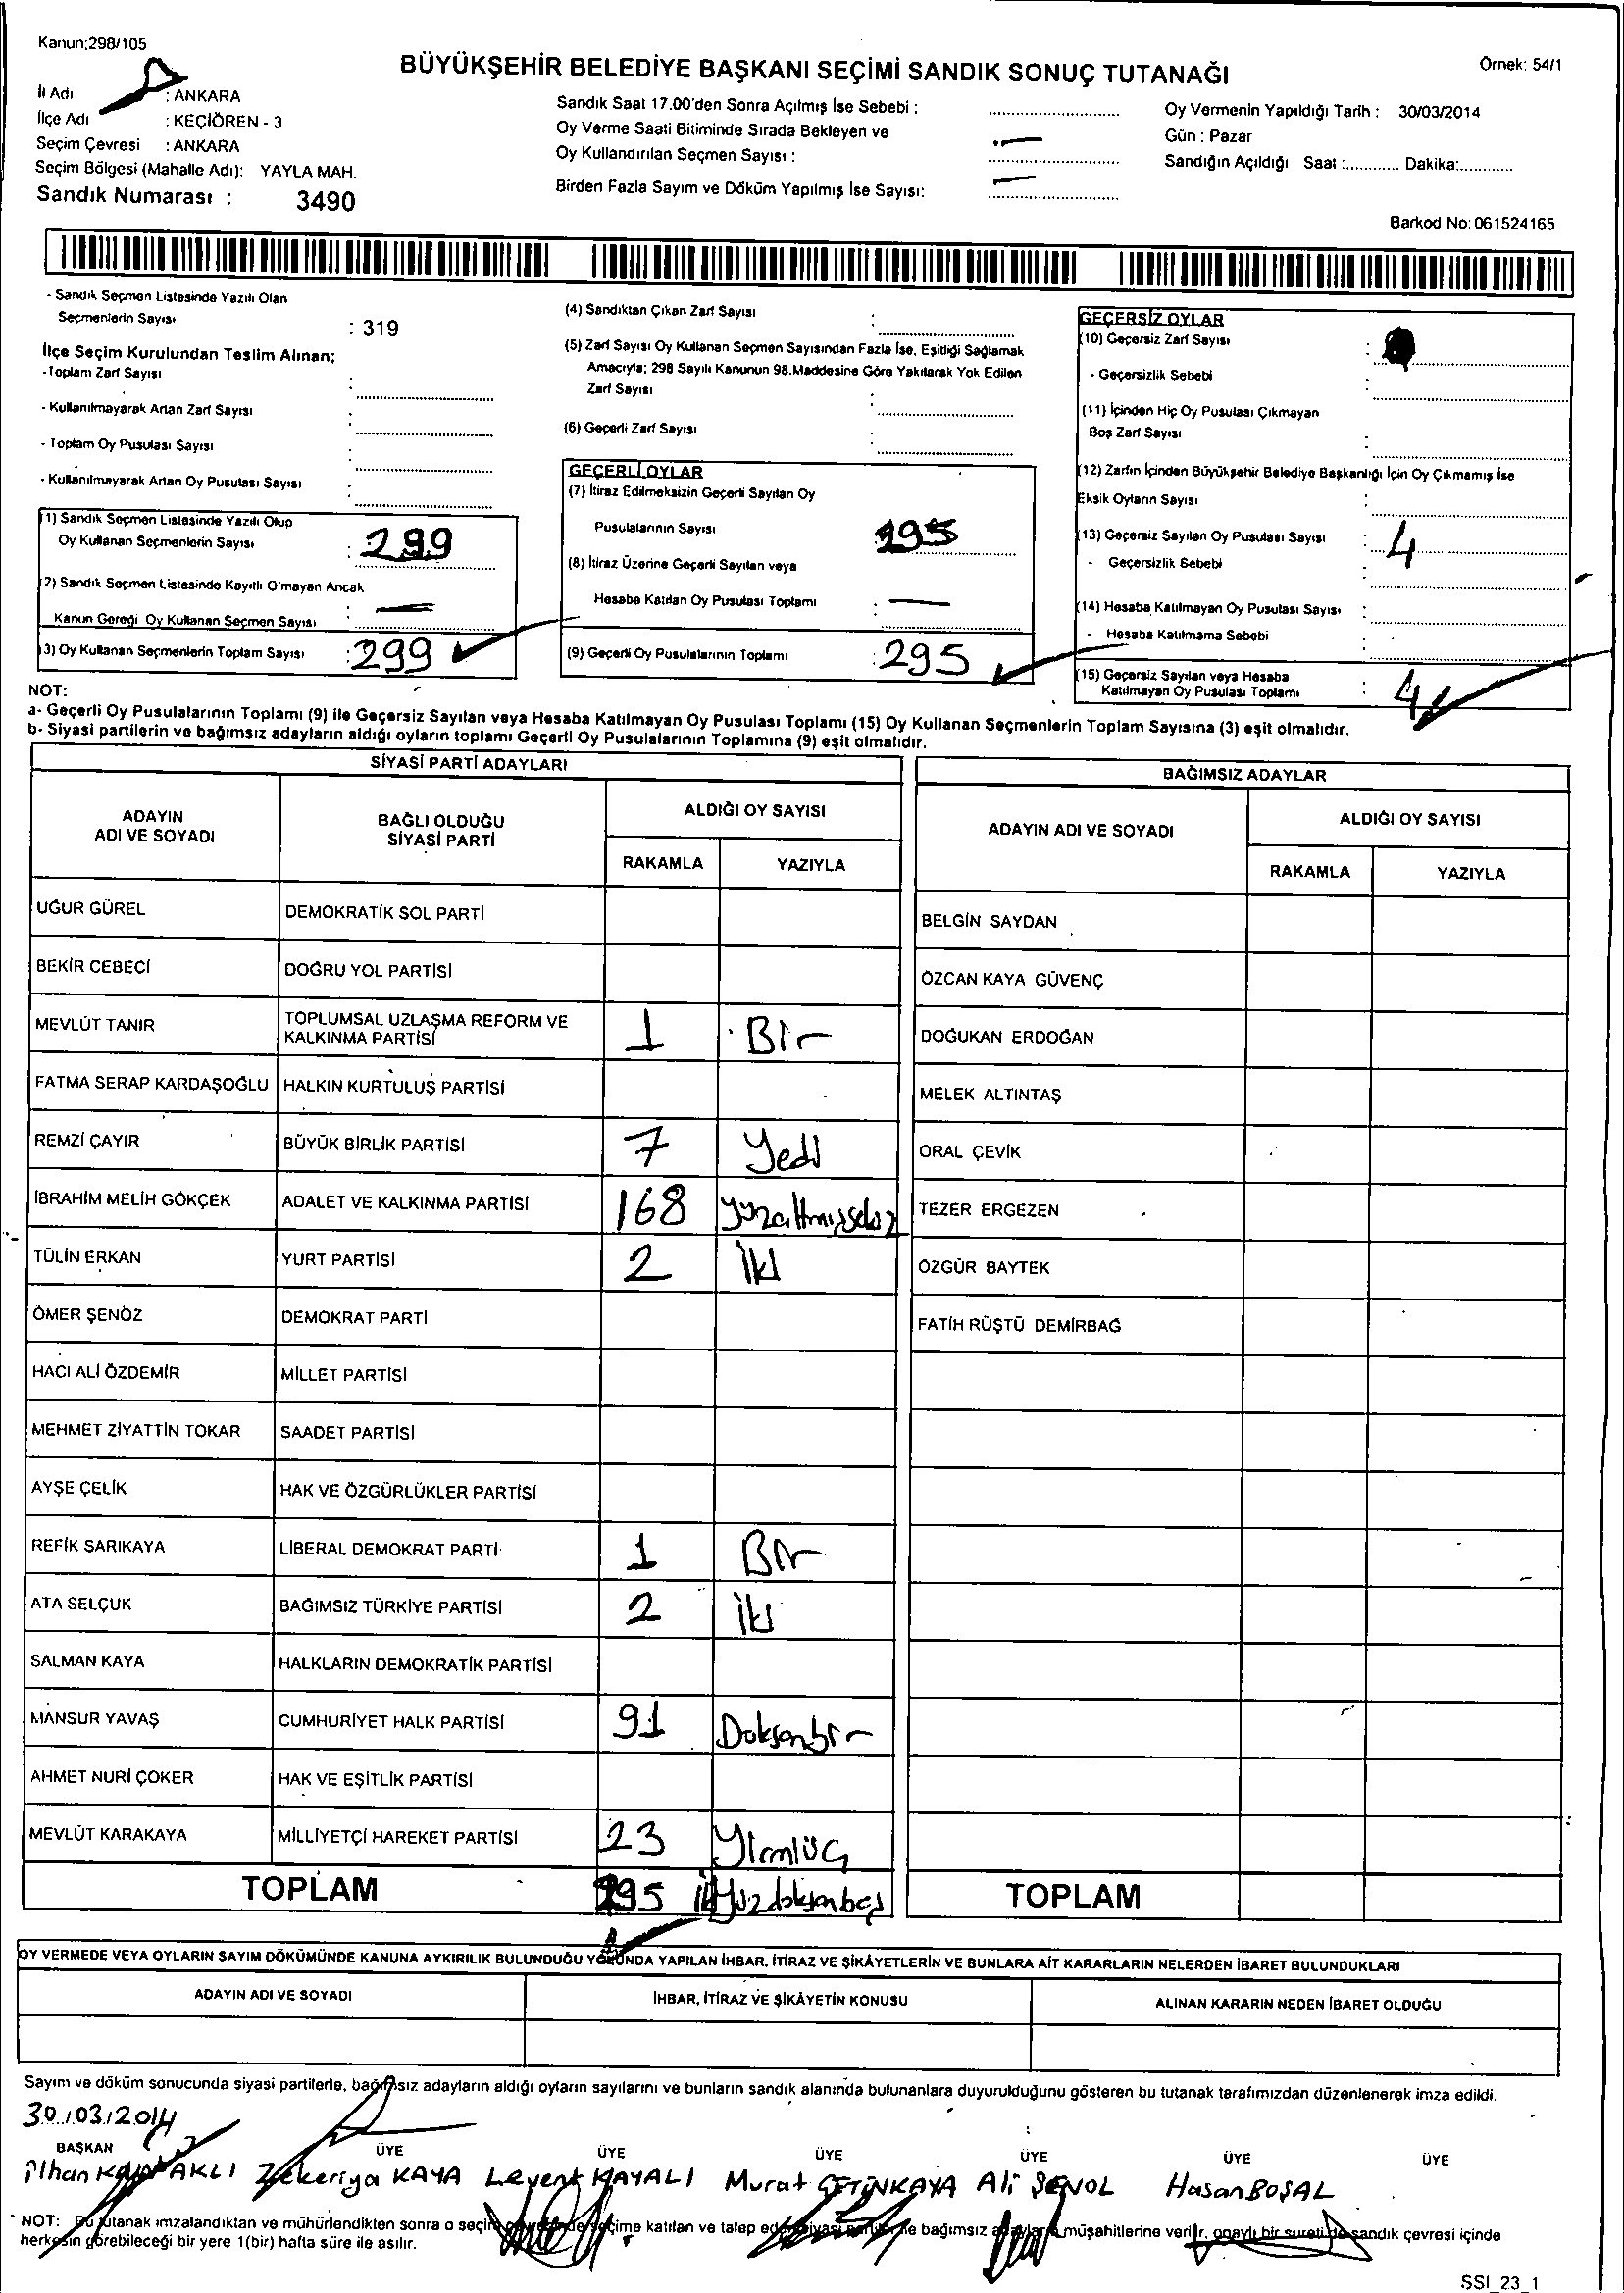 Kanun;298/105
BÜYÜKŞEHİR BELEDİYE BAŞKANI SEÇİMİ SANDIK SONUÇ TUTANAĞI
Örnek: 54/1
İl Adı : ANKARA
İlçe Adı : KEÇİÖREN - 3
Seçim Çevresi : ANKARA
Seçim Bölgesi (Mahalle Adı): YAYLA MAH.
Sandık Numarası : 3490
Sandık Saat 17.00'den Sonra Açılmış İse Sebebi :
Oy Verme Saati Bitiminde Sırada Bekleyen ve
Oy Kullandırılan Seçmen Sayısı :
Birden Fazla Sayım ve Döküm Yapılmış İse Sayısı:
Oy Vermenin Yapıldığı Tarih : 30/03/2014
Gün : Pazar
Sandığın Açıldığı Saat :............ Dakika:............
Barkod No: 061524165
- Sandık Seçmen Listesinde Yazılı Olan
Seçmenlerin Sayısı : 319
İlçe Seçim Kurulundan Teslim Alınan;
- Toplam Zarf Sayısı :
- Kullanılmayarak Artan Zarf Sayısı :
- Toplam Oy Pusulası Sayısı :
- Kullanılmayarak Artan Oy Pusulası Sayısı :
(1) Sandık Seçmen Listesinde Yazılı Olup
Oy Kullanan Seçmenlerin Sayısı : 299
(2) Sandık Seçmen Listesinde Kayıtlı Olmayan Ancak
Kanun Gereği Oy Kullanan Seçmen Sayısı : —
(3) Oy Kullanan Seçmenlerin Toplam Sayısı : 299
(4) Sandıktan Çıkan Zarf Sayısı :
(5) Zarf Sayısı Oy Kullanan Seçmen Sayısından Fazla İse, Eşitliği Sağlamak
Amacıyla; 298 Sayılı Kanunun 98.Maddesine Göre Yakılarak Yok Edilen
Zarf Sayısı :
(6) Geçerli Zarf Sayısı :
GEÇERLİ OYLAR
(7) İtiraz Edilmeksizin Geçerli Sayılan Oy
Pusulalarının Sayısı : 295
(8) İtiraz Üzerine Geçerli Sayılan veya
Hesaba Katılan Oy Pusulası Toplamı : —
(9) Geçerli Oy Pusulalarının Toplamı : 295
GEÇERSİZ OYLAR
(10) Geçersiz Zarf Sayısı :
- Geçersizlik Sebebi
(11) İçinden Hiç Oy Pusulası Çıkmayan
Boş Zarf Sayısı :
(12) Zarfın İçinden Büyükşehir Belediye Başkanlığı İçin Oy Çıkmamış İse
Eksik Oyların Sayısı :
(13) Geçersiz Sayılan Oy Pusulası Sayısı : 4
- Geçersizlik Sebebi
(14) Hesaba Katılmayan Oy Pusulası Sayısı :
- Hesaba Katılmama Sebebi
(15) Geçersiz Sayılan veya Hesaba
Katılmayan Oy Pusulası Toplamı : 4
NOT:
a- Geçerli Oy Pusulalarının Toplamı (9) ile Geçersiz Sayılan veya Hesaba Katılmayan Oy Pusulası Toplamı (15) Oy Kullanan Seçmenlerin Toplam Sayısına (3) eşit olmalıdır.
b- Siyasi partilerin ve bağımsız adayların aldığı oyların toplamı Geçerli Oy Pusulalarının Toplamına (9) eşit olmalıdır.
SİYASİ PARTİ ADAYLARI
ADAYIN ADI VE SOYADI
BAĞLI OLDUĞU SİYASİ PARTİ
ALDIĞI OY SAYISI
RAKAMLA YAZIYLA
UĞUR GÜREL DEMOKRATİK SOL PARTİ
BEKİR CEBECİ DOĞRU YOL PARTİSİ
MEVLÜT TANIR TOPLUMSAL UZLAŞMA REFORM VE KALKINMA PARTİSİ 1 Bir
FATMA SERAP KARDAŞOĞLU HALKIN KURTULUŞ PARTİSİ
REMZİ ÇAYIR BÜYÜK BİRLİK PARTİSİ 7 Yedi
İBRAHİM MELİH GÖKÇEK ADALET VE KALKINMA PARTİSİ 168
TÜLİN ERKAN YURT PARTİSİ 2 İki
ÖMER ŞENÖZ DEMOKRAT PARTİ
HACI ALİ ÖZDEMİR MİLLET PARTİSİ
MEHMET ZİYATTİN TOKAR SAADET PARTİSİ
AYŞE ÇELİK HAK VE ÖZGÜRLÜKLER PARTİSİ
REFİK SARIKAYA LİBERAL DEMOKRAT PARTİ 1 Bir
ATA SELÇUK BAĞIMSIZ TÜRKİYE PARTİSİ 2 İki
SALMAN KAYA HALKLARIN DEMOKRATİK PARTİSİ
MANSUR YAVAŞ CUMHURİYET HALK PARTİSİ 91 Doksanbir
AHMET NURİ ÇOKER HAK VE EŞİTLİK PARTİSİ
MEVLÜT KARAKAYA MİLLİYETÇİ HAREKET PARTİSİ 23 Yirmiüç
TOPLAM 295 ikiyüzdoksanbeş
BAĞIMSIZ ADAYLAR
ADAYIN ADI VE SOYADI
ALDIĞI OY SAYISI
RAKAMLA YAZIYLA
BELGİN SAYDAN
ÖZCAN KAYA GÜVENÇ
DOĞUKAN ERDOĞAN
MELEK ALTINTAŞ
ORAL ÇEVİK
TEZER ERGEZEN
ÖZGÜR BAYTEK
FATİH RÜŞTÜ DEMİRBAĞ
TOPLAM
OY VERMEDE VEYA OYLARIN SAYIM DÖKÜMÜNDE KANUNA AYKIRILIK BULUNDUĞU YOLUNDA YAPILAN İHBAR, İTİRAZ VE ŞİKÂYETLERİN VE BUNLARA AİT KARARLARIN NELERDEN İBARET BULUNDUKLARI
ADAYIN ADI VE SOYADI
İHBAR, İTİRAZ VE ŞİKÂYETİN KONUSU
ALINAN KARARIN NEDEN İBARET OLDUĞU
Sayım ve döküm sonucunda siyasi partilerle, bağımsız adayların aldığı oyların sayılarını ve bunların sandık alanında bulunanlara duyurulduğunu gösteren bu tutanak tarafımızdan düzenlenerek imza edildi.
30/03/2014
BAŞKAN ÜYE ÜYE ÜYE ÜYE ÜYE ÜYE
ilhan Zekeriya KAYA Levent KAYALI Murat ÇETİNKAYA Ali ŞENOL Hasan BOŞAL
NOT: Bu tutanak imzalandıktan ve mühürlendikten sonra o seçim çevresinde seçime katılan ve talep eden siyasi partiler ile bağımsız adayların müşahitlerine verilir, onaylı bir sureti de sandık çevresi içinde
herkesin görebileceği bir yere 1(bir) hafta süre ile asılır.
SSI_23_1